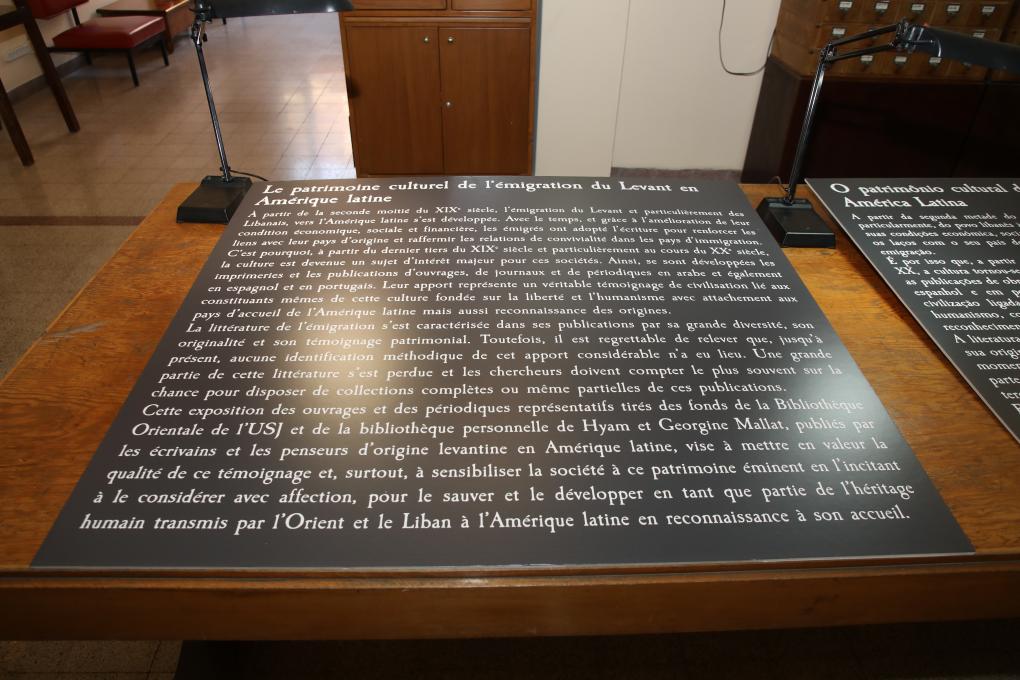 Le patrimoine culturel de l'émigration du Levant en
Amérique latine
A partir de la seconde moitié du XIXe siècle, l'émigration du Levant et particulièrement des
Libanais, vers l'Amérique latine s'est développée. Avec le temps, et grâce à l'amélioration de leur
condition économique, sociale et financière, les émigrés ont adopté l'écriture pour renforcer les
liens avec leur pays d'origine et raffermir les relations de convivialité dans les pays d'immigration.
C'est pourquoi, à partir du dernier tiers du XIXe siècle et particulièrement au cours du XXe siècle,
la culture est devenue un sujet d'intérêt majeur pour ces sociétés. Ainsi, se sont développées les
imprimeries et les publications d'ouvrages, de journaux et de périodiques en arabe et également
en espagnol et en portugais. Leur apport représente un véritable témoignage de civilisation lié aux
constituants mêmes de cette culture fondée sur la liberté et l'humanisme avec attachement aux
pays d'accueil de l'Amérique latine mais aussi reconnaissance des origines.
La littérature de l'émigration s'est caractérisée dans ses publications par sa grande diversité, son
originalité et son témoignage patrimonial. Toutefois, il est regrettable de relever que, jusqu'à
présent, aucune identification méthodique de cet apport considérable n'a eu lieu. Une grande
partie de cette littérature s'est perdue et les chercheurs doivent compter le plus souvent sur la
chance pour disposer de collections complètes ou même partielles de ces publications.
Cette exposition des ouvrages et des périodiques représentatifs tirés des fonds de la Bibliothèque
Orientale de l'USJ et de la bibliothèque personnelle de Hyam et Georgine Mallat, publiés par
les écrivains et les penseurs d'origine levantine en Amérique latine, vise à mettre en valeur la
qualité de ce témoignage et, surtout, à sensibiliser la société à ce patrimoine éminent en l'incitant
à le considérer avec affection, pour le sauver et le développer en tant que partie de l'héritage
humain transmis par l'Orient et le Liban à l'Amérique latine en reconnaissance à son accueil.
O patrimônio cultural
América Latina
A partir da segunda metade do
particularmente, do povo libanês
suas condições econômicas,
os laços com o seu país de
emigração.
É por isso que, a partir
XX, a cultura
as publicações de
espanhol e em
civilização
humanismo,
A literatura
sua